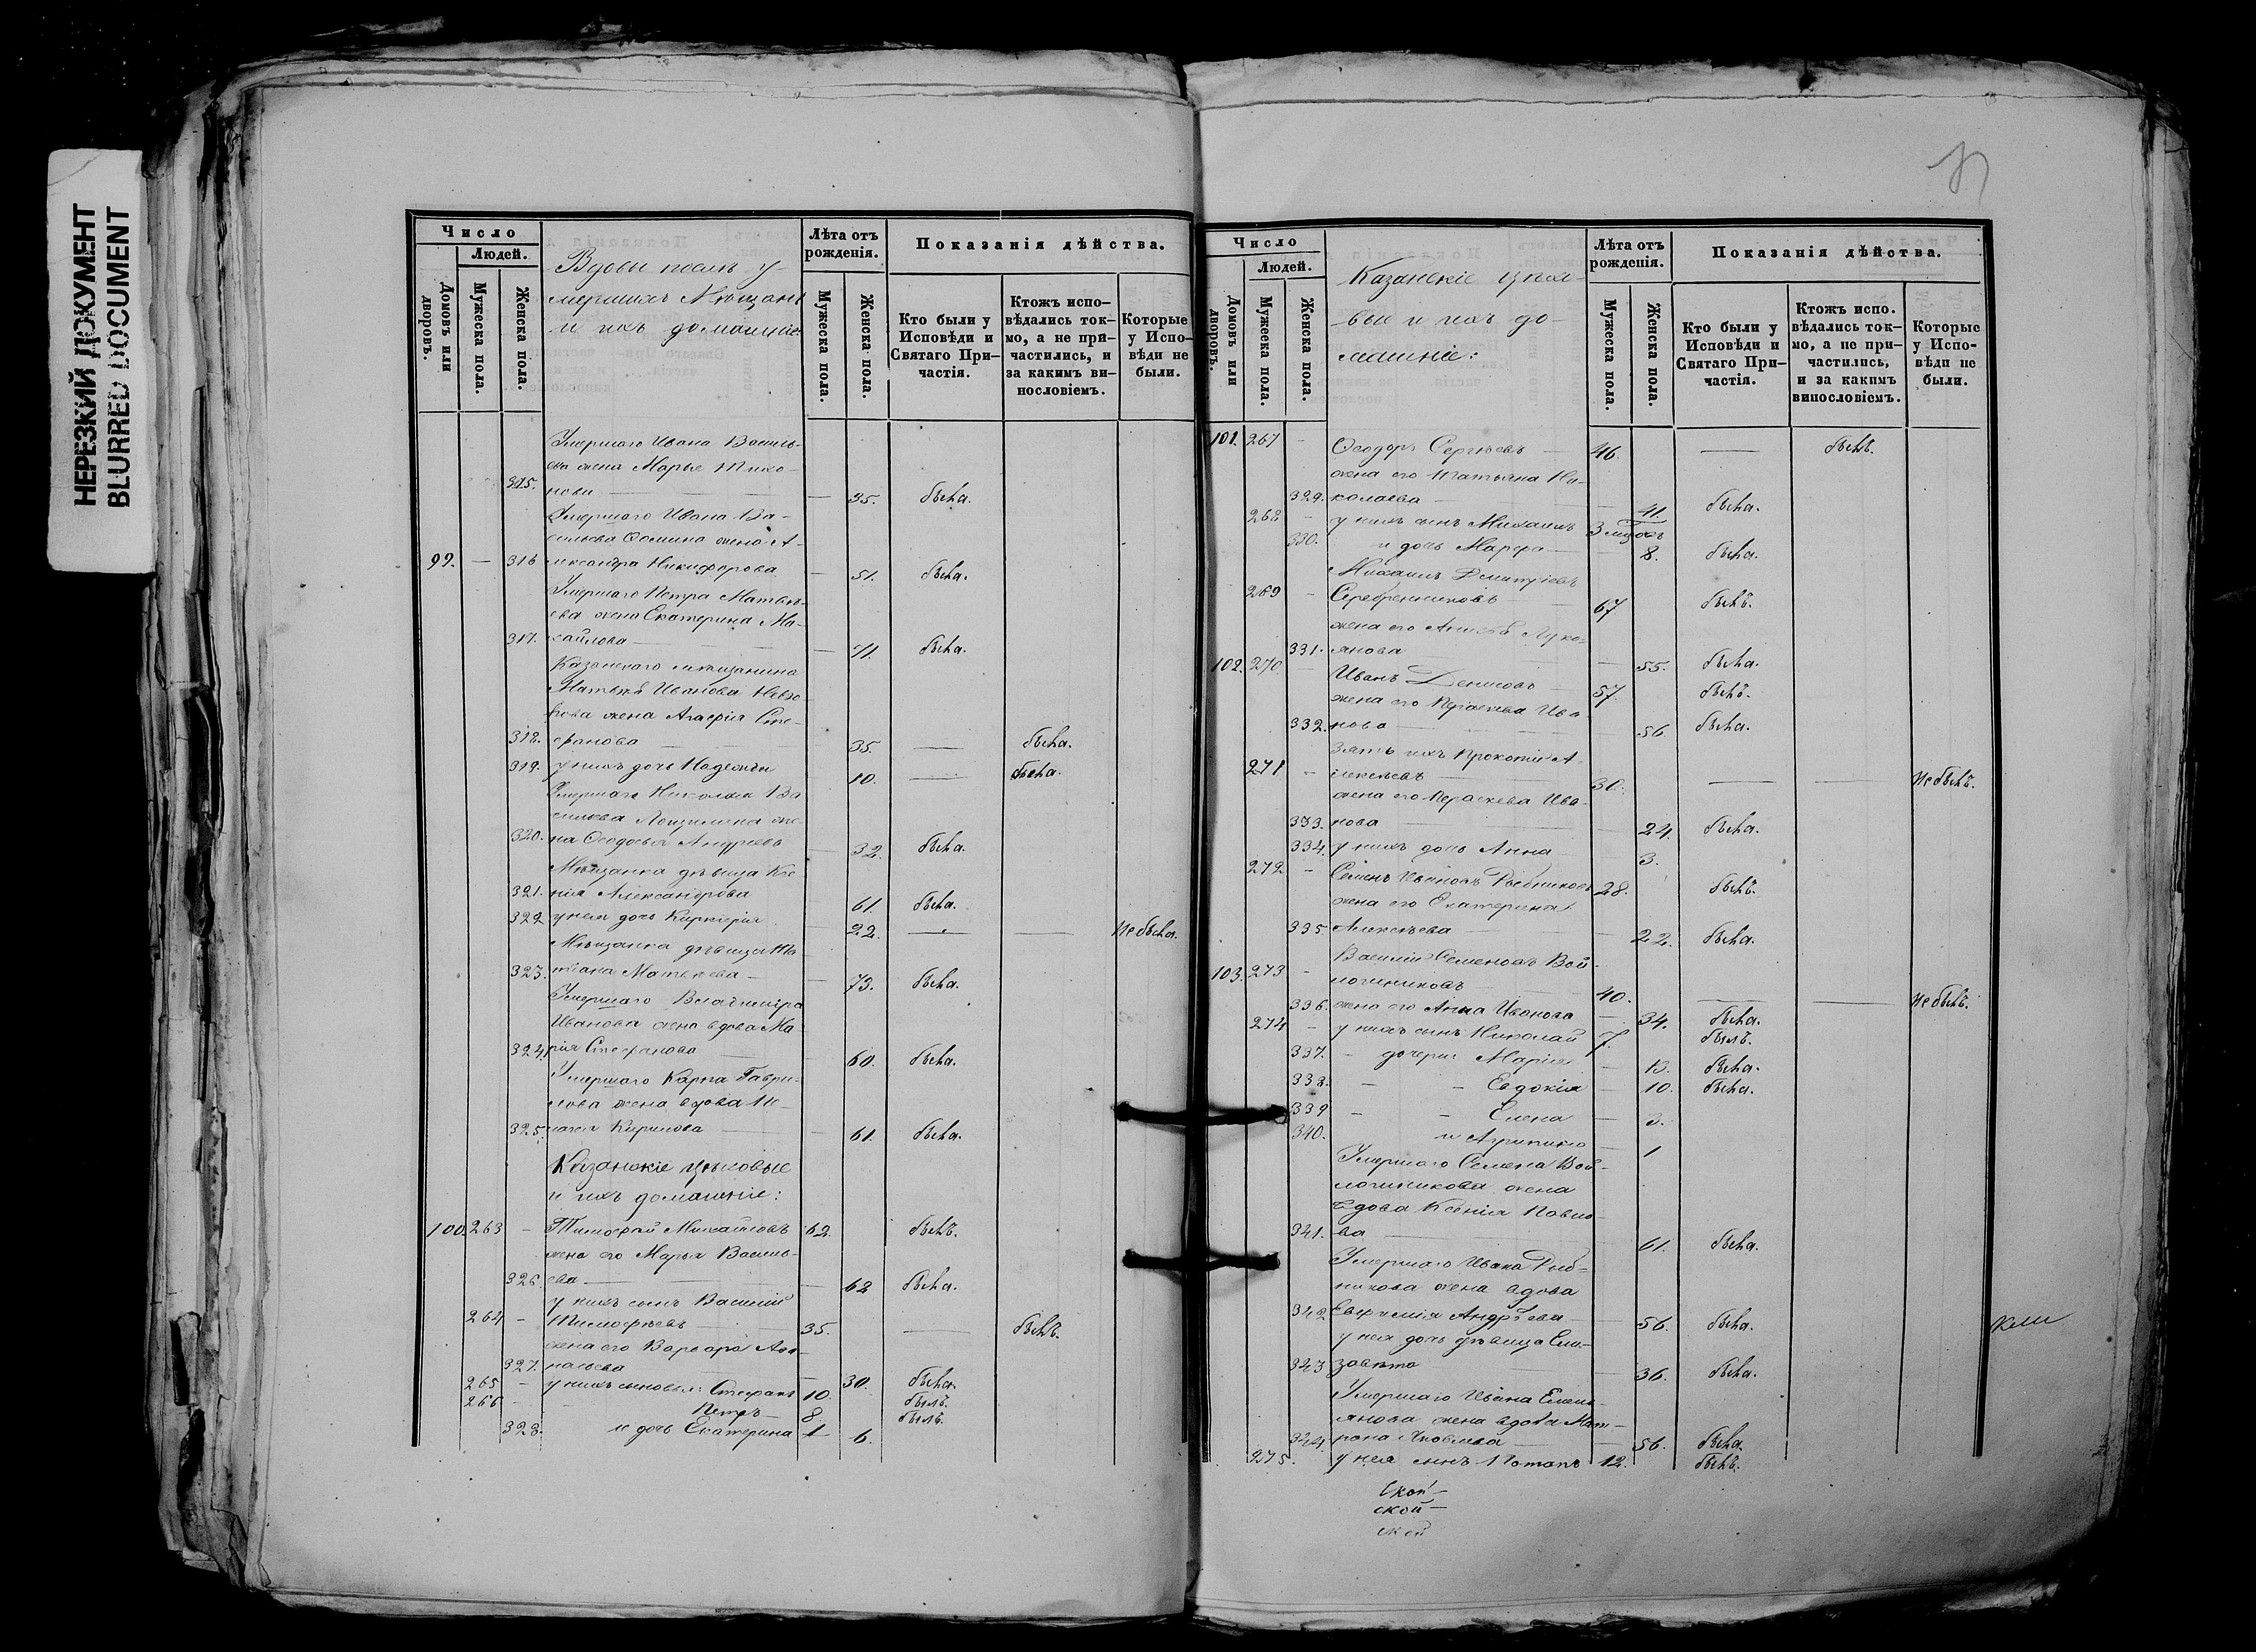 НЕРЕЗКИЙ ДОКУМЕНТ
BLURRED DOCUMENT
Число
Людей.
Домовъ или дворовъ.
Мужеска пола.
Женска пола.
Вдовы послѣ у-
мершихъ Мѣщанъ
и ихъ домашніе
Лѣта отъ рожденія.
Мужеска пола.
Женска пола.
Показанія дѣйства.
Кто были у Исповѣди и Святаго При-частія.
Ктожъ испо-вѣдались ток-мо, а не при-частились, и за какимъ ви-нословіемъ.
Которые у Испо-вѣди не были.
Умершаго Ивана Василь-
ева жена Марья Тихо-
315. нова — 35. была.
Умершаго Ивана Ва-
сильева Фомина жена А-
99. — 316 лександра Никифорова — 51. была.
Умершаго Петра Матвѣ-
ева жена Екатерина Ми-
317. хайлова — 71. была.
Казанскаго мѣщанина
Матвѣя Иванова
жена Агафія Сте-
318. фанова 35. — была.
319. у нихъ дочь Надежда 10. — была.
Умершаго Николая Ва
сильева же-
320. на Ѳеодосья Андреева — 32. была.
Мѣщанка дѣвица Ксе
321. нія Александрова — 61. была.
322 у нея дочь — 22. — — не была.
Мѣщанка дѣвица Та
323. тіана Матвѣева — 73. была.
Умершаго Владимира
Иванова жена вдова Ма-
324. рія Стефанова 60. была.
Умершаго Карпа Гаври-
лова жена вдова Пе-
325. лагея Кирилова — 61. была.
Казанскіе цѣховые
и ихъ домашніе:
100. 263 — Тимофей Михайловъ 62. былъ.
жена его Марья Василь-
326. ева — — 62 была.
у нихъ сынъ Василій
264 — Тимофѣевъ 35. — былъ.
жена его Варвара Аѳа-
327. насьева — 30. была.
265 — у нихъ сыновья: Стефанъ 10. былъ.
266 — Петръ 8. былъ.
328. и дочь Екатерина 6.
Число
Людей.
Домовъ или дворовъ.
Мужеска пола.
Женска пола.
Казанскіе цѣхо-
вые и ихъ до-
машніе:
Лѣта отъ рожденія.
Мужеска пола.
Женска пола.
Показанія дѣйства.
Кто были у Исповѣди и Святаго При-частія.
Ктожъ испо. вѣдались ток-мо, а не при-частились, и за какимъ винословіемъ.
Которые у Испо-вѣди не были.
101. 267 — Ѳеодоръ Сергѣевъ 46. — былъ.
жена его Татьяна Ни-
329. колаева — 41. была.
268 — у нихъ сынъ Михаилъ 3
330. и дочь Марфа 8. была.
Михаилъ Дмитріевъ
269 — Серебренниковъ 67 былъ.
жена его Луко-
331. янова — 55. была.
102. 270 — Иванъ Денисовъ 57. былъ.
жена его Праскева Ива
332. нова 56. была.
Зять ихъ Прокопій А-
271 — лексѣевъ 30. — — не былъ.
жена его Праскева Ива-
333. нова — 24. была.
334. у нихъ дочь Анна 3.
272 — Семенъ Ивановъ Рыбниковъ 28. былъ.
жена его Екатерина
335 Алексѣева — 22. была.
Василій Семеновъ Вой-
103. 273 — лошниковъ 40. — — не былъ.
336. жена его Анна Иванова — 34. была.
274 — у нихъ сынъ Николай 7. былъ.
337. — дочери: Марія — 13. была.
338. — — Евдокія — 10. была.
339 — — Елена — 3.
340. и Агрипина — 1
Умершаго Семена Вой-
лошникова жена
вдова Ксенія Павло-
341. ва — 61. была.
Умершаго Ивана Рыб-
никова жена вдова
342 Евфимія Андрѣева 56. была.
у нея дочь дѣвица Ели-
343 завета — 36. была.
Умершаго Ивана Емель-
янова жена вдова Мат-
344. рона Яковлева — 56. была.
275. у нея сынъ Потапъ 12. былъ.
ской
ской
ской